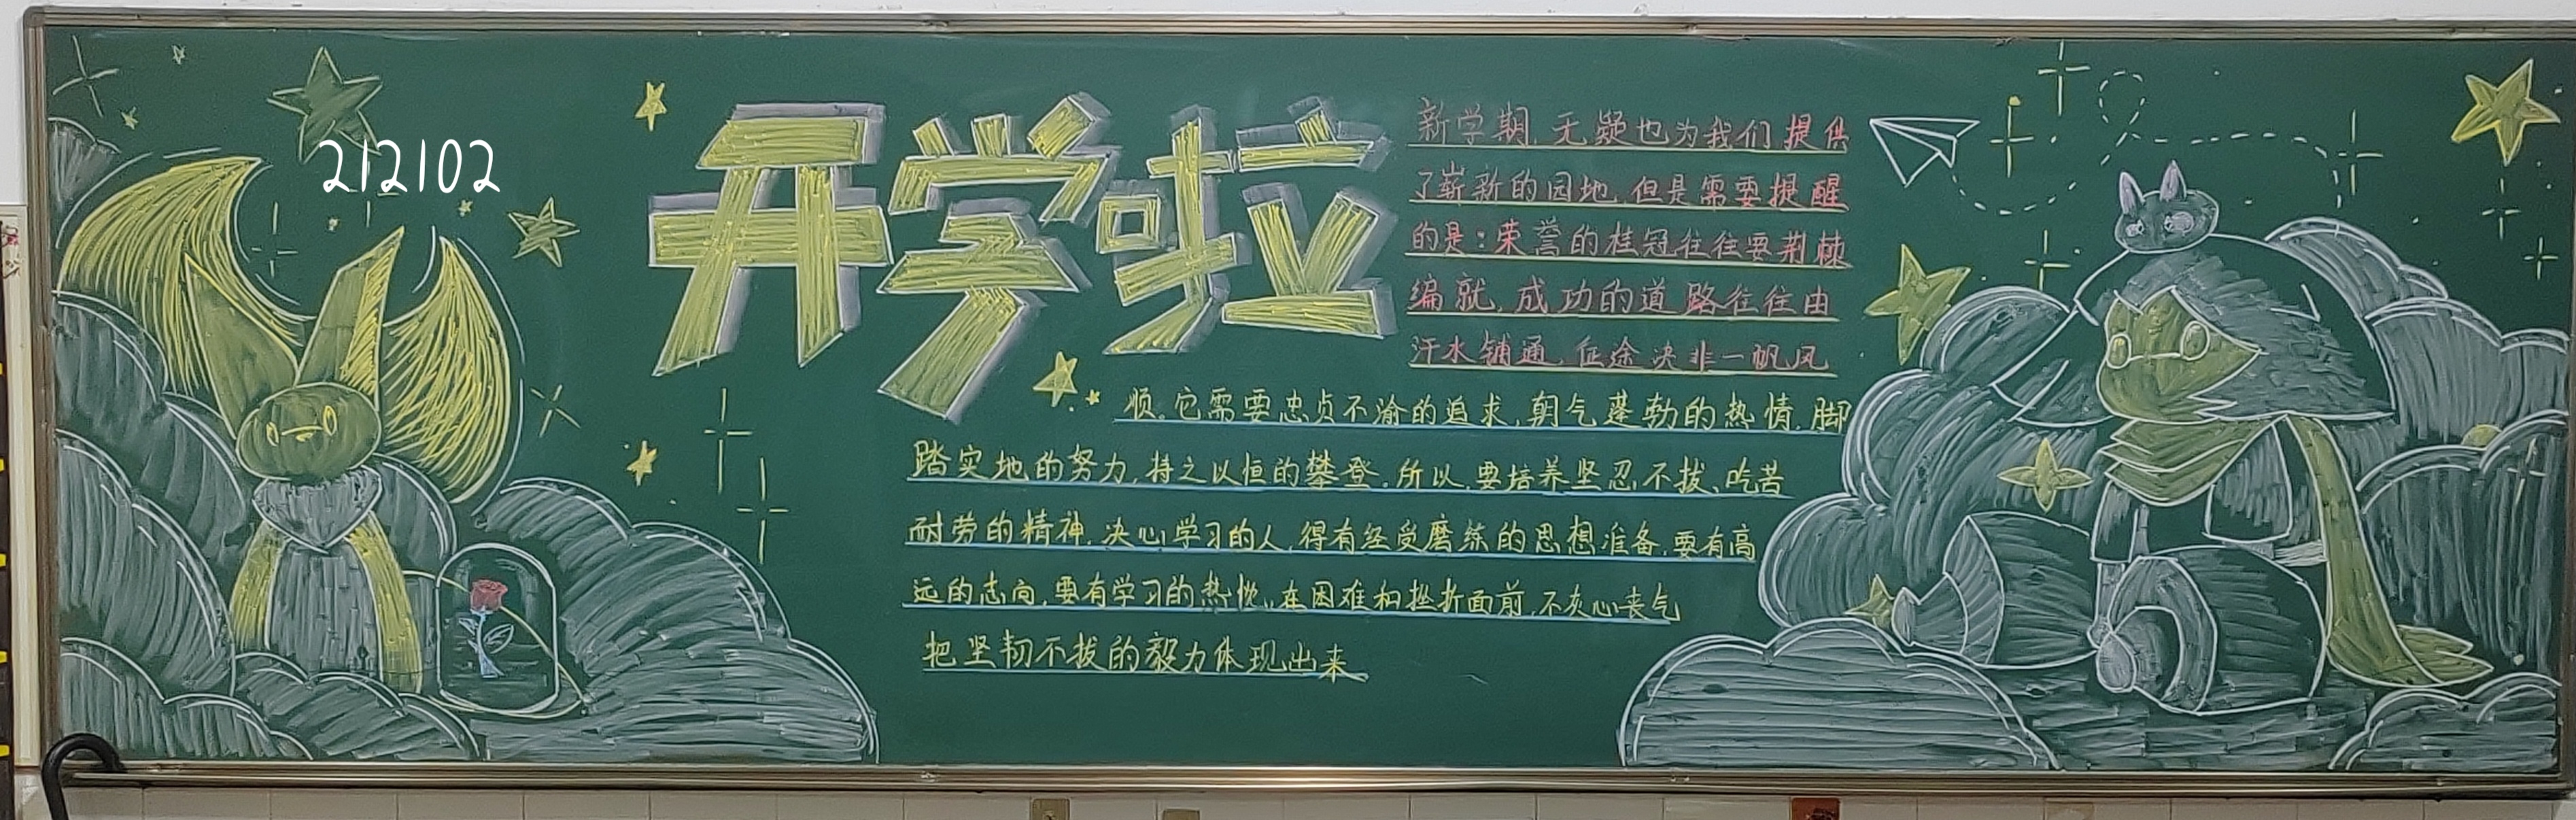 212102
开学啦
新学期,无疑也为我们提供
了崭新的园地,但是需要提醒
的是:荣誉的桂冠往往要荆棘
编就,成功的道路往往由
汗水铺通,征途决非一帆风
顺。它需要忠贞不渝的追求,朝气蓬勃的热情,脚
踏实地的努力,持之以恒的攀登,所以,要培养坚忍不拔、吃苦
耐劳的精神,决心学习的人,得有经受磨练的思想准备,要有高
远的志向,要有学习的热忱,在困难和挫折面前,不灰心丧气
把坚韧不拔的毅力体现出来